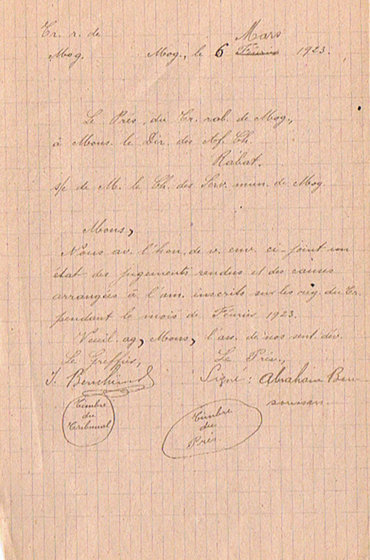 Tr. r. de
Mog.
Mars
Mog., le 6 Février 1923.
Le Prés. du Tr. rab. de Mog.,
à Mons. le Dir. des Aff. Ch.
Rabat.
s/c de M. le Ch. des Serv. mun. de Mog.
Mons,
Nous av. l'hon. de v. env. ci-joint un
état des jugements rendus et des causes
arrangées à l'am. inscrits sur les reg. du Tr.
pendant le mois de Février 1923.
Veuil. ag, Mons, l'ass. de nos sent. dév.
Le Greffier, Le Prés.,
Signé: Abraham Ben
soussan.
Timbre
du
Tribunal
Timbre
du
Prés